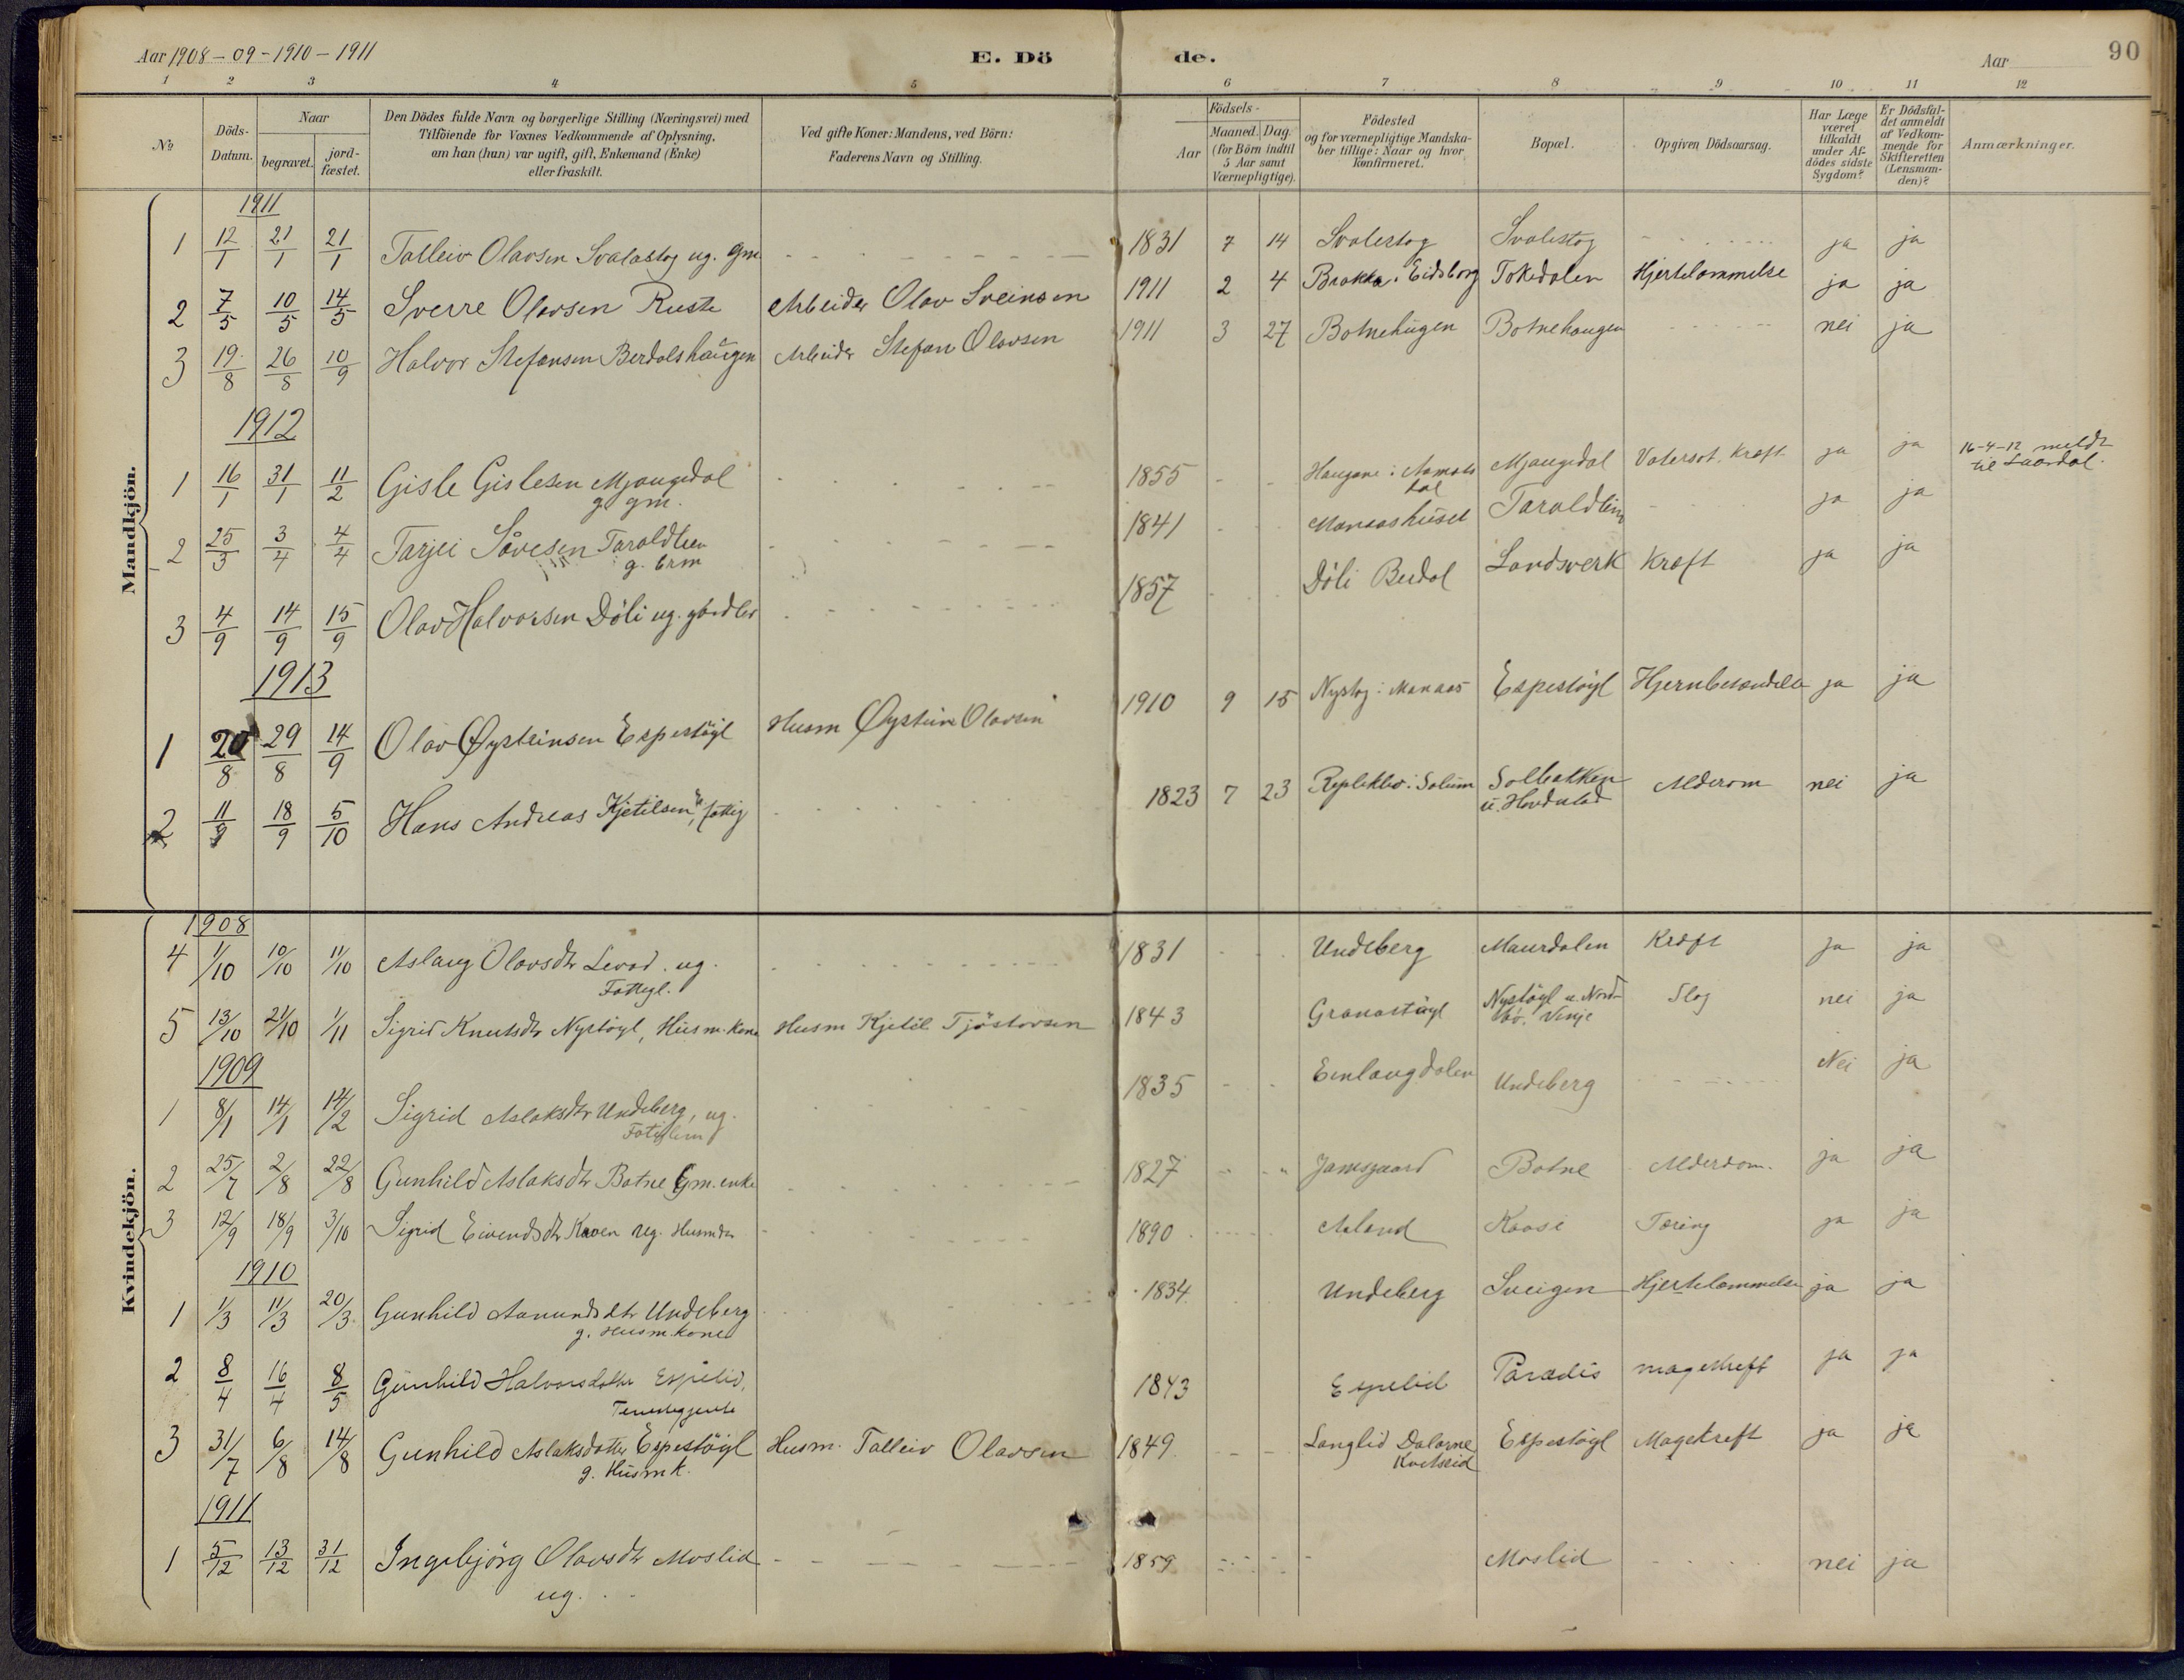 Aar 1908 - 09 - 1910 - 1911
E. Dö de.
Aar
90
1 2 3 4 5 6 7 8 9 10 11 12
No
Döds-Datum.
Naar
begravet.
jord-fæstet.
Den Dödes fulde Navn og borgerlige Stilling (Næringsvei) med
Tilföiende for Voxnes Vedkommende af Oplysning,
om han (hun) var ugift, gift, Enkemand (Enke)
eller fraskilt.
Ved gifte Koner: Mandens, ved Börn:
Faderens Navn og Stilling.
Födsels-
Aar
Maaned. Dag.
(for Börn indtil
5 Aar samt
Værnepligtige).
Födested
og for værnepligtige Mandska-
ber tillige: Naar og hvor
konfirmeret.
Bopæl.
Opgiven Dödsaarsag.
Har Læge
været
tilkaldt
under Af-
dödes sidste
Sygdom?
Er Dödsfal-
det anmeldt
af Vedkom-
mende for
Skifteretten
(Lensman-
den)?
Anmærkninger.
Mandkjön.
1911
1 12/1 21/1 21/1 Talleiv Olavsen Svalastog ug. gm 1831 7 14 Svalestog Svalestog ja ja
2 7/5 10/5 14/5 Sverre Olavsen Ruste Arbeider Olav Sveinsen 1911 2 4 Brokka i Eidsborg Tokedalen Hjertelammelse ja ja
3 19/8 26/8 10/9 Halvor Stefansen Berdalshaugen Arbeider Stefan Olavsen 1911 3 27 Botnehugen Botnehaugen nei ja
1912
1 16/1 31/1 11/2 Gisle Gislesen Mjaugedal 1855 Haugane i Aamots Mjaugedal Kræft ja ja 16-4-12 meldt
g gm. dal til Laardal.
2 25/3 3/4 4/4 Tarjei Såvesen Taraldlien 1841 Manaashuset Taraldlien ja ja
g. brm
3 4/9 14/9 15/9 Olav Halvorsen Döli ug. 1857 Döli Berdal Landsverk Kræft ja ja
1913
1 20/8 29/8 14/9 Olav Øysteinsen Espestöyl Husm Øystein Olavsen 1910 9 15 Nystog i Manaas Espestöyl ja ja
2 11/9 18/9 5/10 Hans Andreas Kjetilsen, fattig 1823 7 23 i Solum Solbakken Alderom nei ja
u. Hovdestad
Kvindekjön.
1908
4 1/10 10/10 11/10 Aslaug Olavsdtr Levod. ug. 1831 Undeberg Maurdalen Kræft ja ja
Fattigl.
5 13/10 21/10 1/11 Sigrid Knutsdtr Nystöyl, Husm. kone Husm Kjetil Tjöstovsen 1843 Granastöyl Nystöyl u. Nord- Slag nei ja
bö. Vinje
1909
1 8/1 14/1 14/2 Sigrid Aslaksdtr Undeberg, ug. 1835 Einlaugdalen Undeberg Nei ja
Fatiglem
2 25/7 2/8 22/8 Gunhild Aslaksdtr Botne Gm. enke 1827 Jamsgaard Botne Alderdom. ja ja
3 12/9 18/9 3/10 Sigrid Eivendsdtr Kaven ug. Husmdtr 1890 Aaland Kaasi Tæring ja ja
1910
1 1/3 11/3 20/3 Gunhild Aanundsdtr Undeberg 1834 Undeberg Sveigen Hjertelammelse ja ja
g. Husm. kone
2 8/4 16/4 8/5 Gunhild Halvorsdotter Espelid, 1843 Espelid Paradis magekreft ja ja
Tenestegjente
3 31/7 6/8 14/8 Gunhild Aslaksdotter Espestöyl Husm. Talleiv Olavsen 1849 Langlid Dalarne Espestöyl Magekreft ja ja
g. Husmk. Kvitseid
1911
1 5/12 13/12 31/12 Ingebjörg Olavsdtr Moslid 1859 Moslid nei ja
ug.